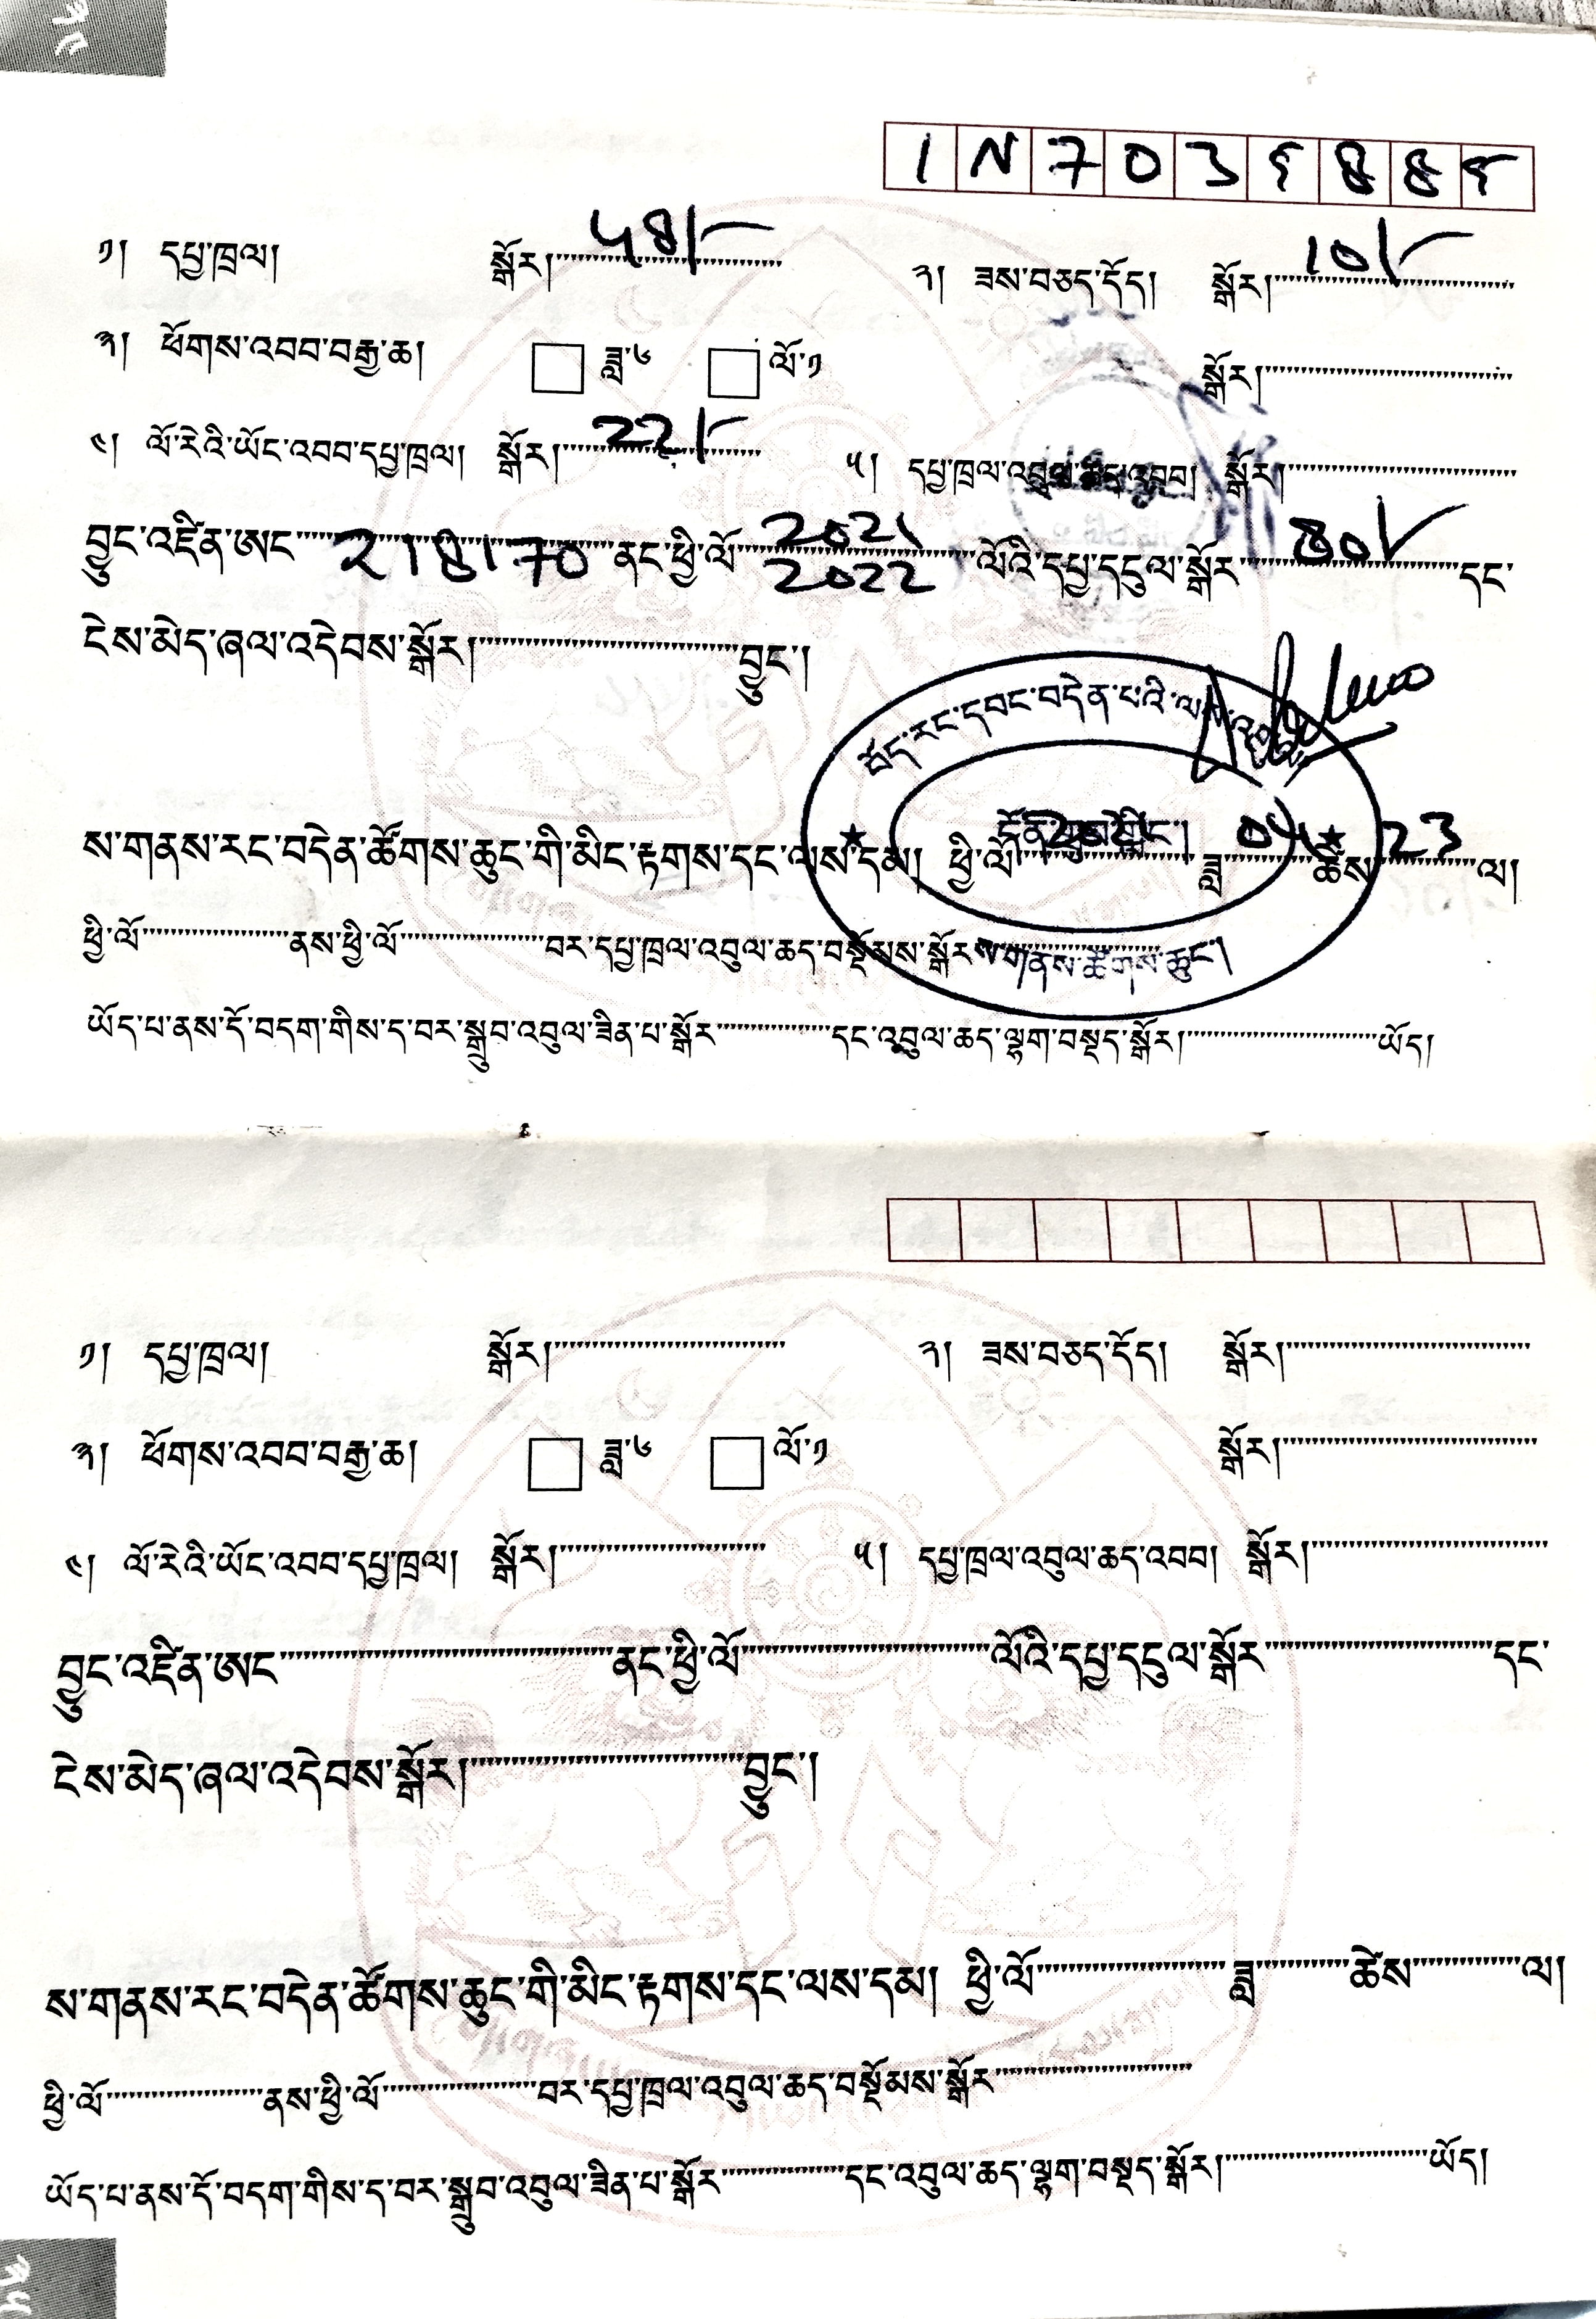 IN7035885
༡། དཔྱ་ཁྲལ། སྒོར། 48/- ༢། ཟས་བཅད་དོད། སྒོར། 10/-
༣། ཕོགས་འབབ་བརྒྱ་ཆ། ཟླ་༦ ལོ་༡ སྒོར།
༤། ལོ་རེའི་ཡོང་འབབ་དཔྱ་ཁྲལ། སྒོར། 22/- ༥། དཔྱ་ཁྲལ་འབུལ་ཆད་འབབ། སྒོར།
བྱུང་འཛིན་ཨང 218170 ནང་ཕྱི་ལོ 2021 2022 ལོའི་དཔྱ་དངུལ་སྒོར 80/ དང་
ངེས་མེད་ཞལ་འདེབས་སྒོར། བྱུང་།
བོད་རང་དབང་བདེན་པའི་
ས་གནས་རང་བདེན་ཚོགས་ཆུང་གི་མིང་རྟགས་དང་ལས་དམ། ཕྱི་ལོ ཟླ ཚེས 23 ལ།
ཕྱི་ལོ ནས་ཕྱི་ལོ བར་དཔྱ་ཁྲལ་འབུལ་ཆད་བསྡོམས་སྒོར
ས་གནས་ཚོགས་ཆུང་།
ཡོད་པ་ནས་དོ་བདག་གིས་ད་བར་སྒྲུབ་འབུལ་ཟིན་པ་སྒོར དང་འབུལ་ཆད་ལྷག་བསྡད་སྒོར། ཡོད།
༡། དཔྱ་ཁྲལ། སྒོར། ༢། ཟས་བཅད་དོད། སྒོར།
༣། ཕོགས་འབབ་བརྒྱ་ཆ། ཟླ་༦ ལོ་༡ སྒོར།
༤། ལོ་རེའི་ཡོང་འབབ་དཔྱ་ཁྲལ། སྒོར། ༥། དཔྱ་ཁྲལ་འབུལ་ཆད་འབབ། སྒོར།
བྱུང་འཛིན་ཨང ནང་ཕྱི་ལོ ལོའི་དཔྱ་དངུལ་སྒོར དང་
ངེས་མེད་ཞལ་འདེབས་སྒོར། བྱུང་།
ས་གནས་རང་བདེན་ཚོགས་ཆུང་གི་མིང་རྟགས་དང་ལས་དམ། ཕྱི་ལོ ཟླ ཚེས ལ།
ཕྱི་ལོ ནས་ཕྱི་ལོ བར་དཔྱ་ཁྲལ་འབུལ་ཆད་བསྡོམས་སྒོར
ཡོད་པ་ནས་དོ་བདག་གིས་ད་བར་སྒྲུབ་འབུལ་ཟིན་པ་སྒོར དང་འབུལ་ཆད་ལྷག་བསྡད་སྒོར། ཡོད།